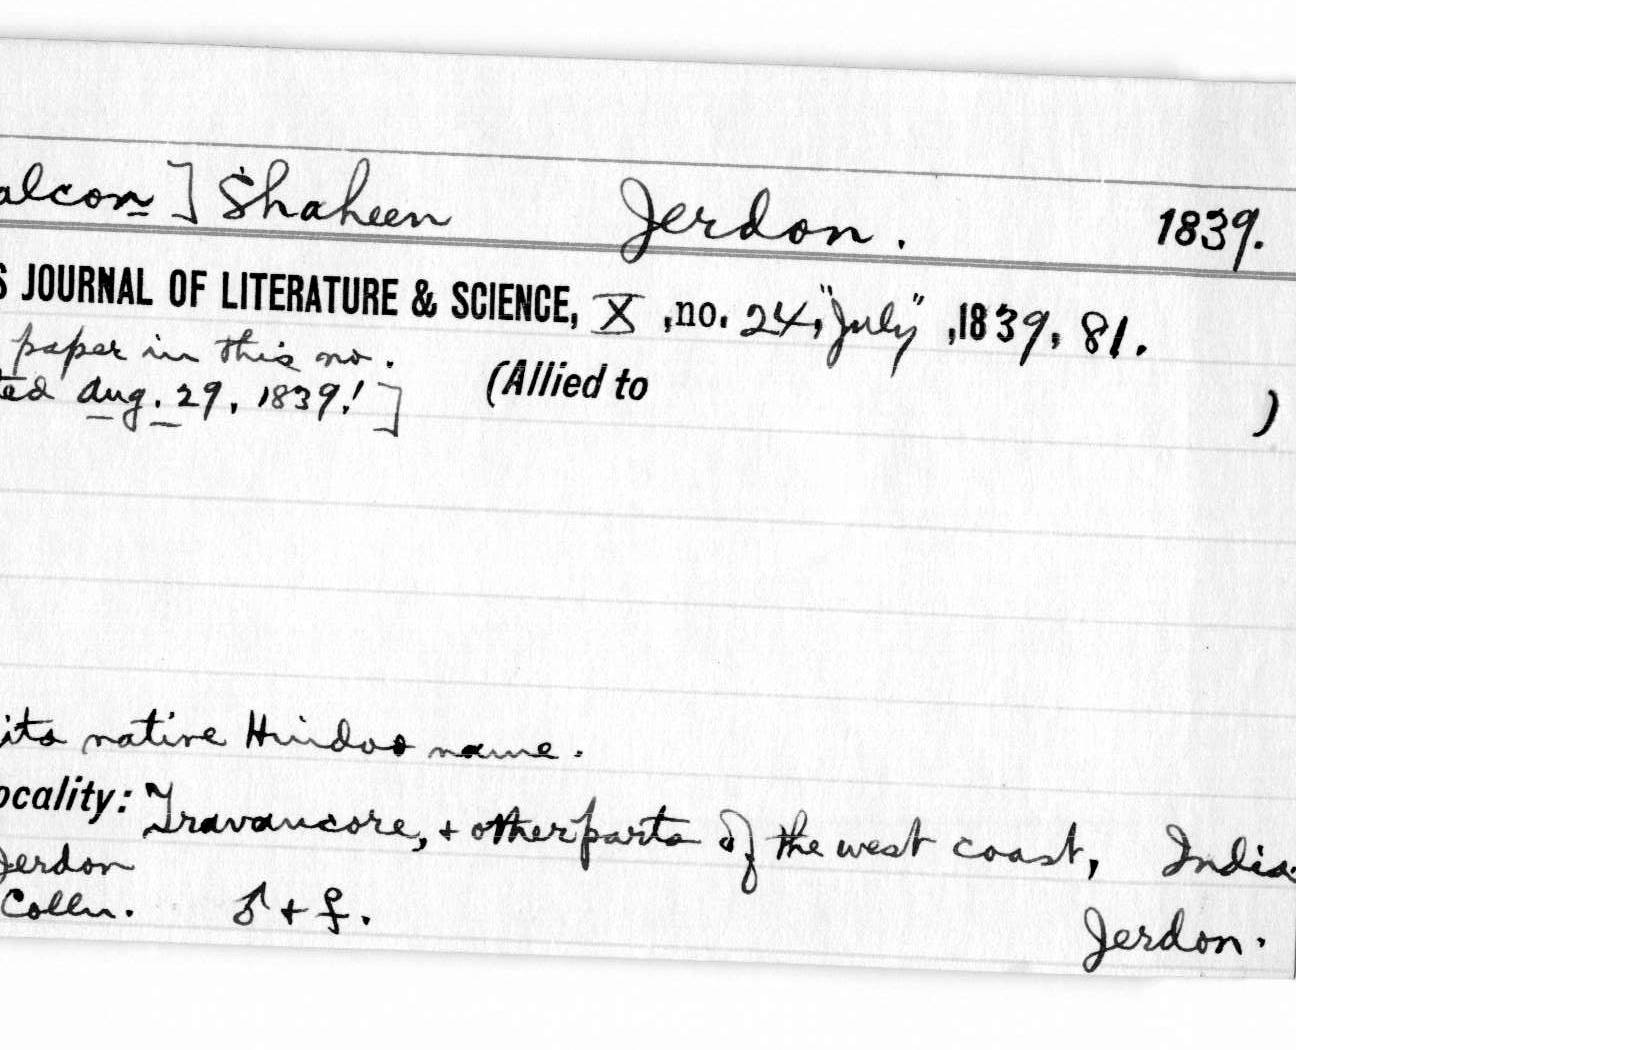 alcon] Shaheen Jerdon. 1839.
S JOURNAL OF LITERATURE & SCIENCE, X, no. 24, "July", 1839, 81.
paper in this no.
ted Aug. 29, 1839!] (Allied to )
its native Hindoo name.
ocality: Travancore, + other parts of the west coast, India.
Jerdon
Colln. ♂ + ♀. Jerdon.